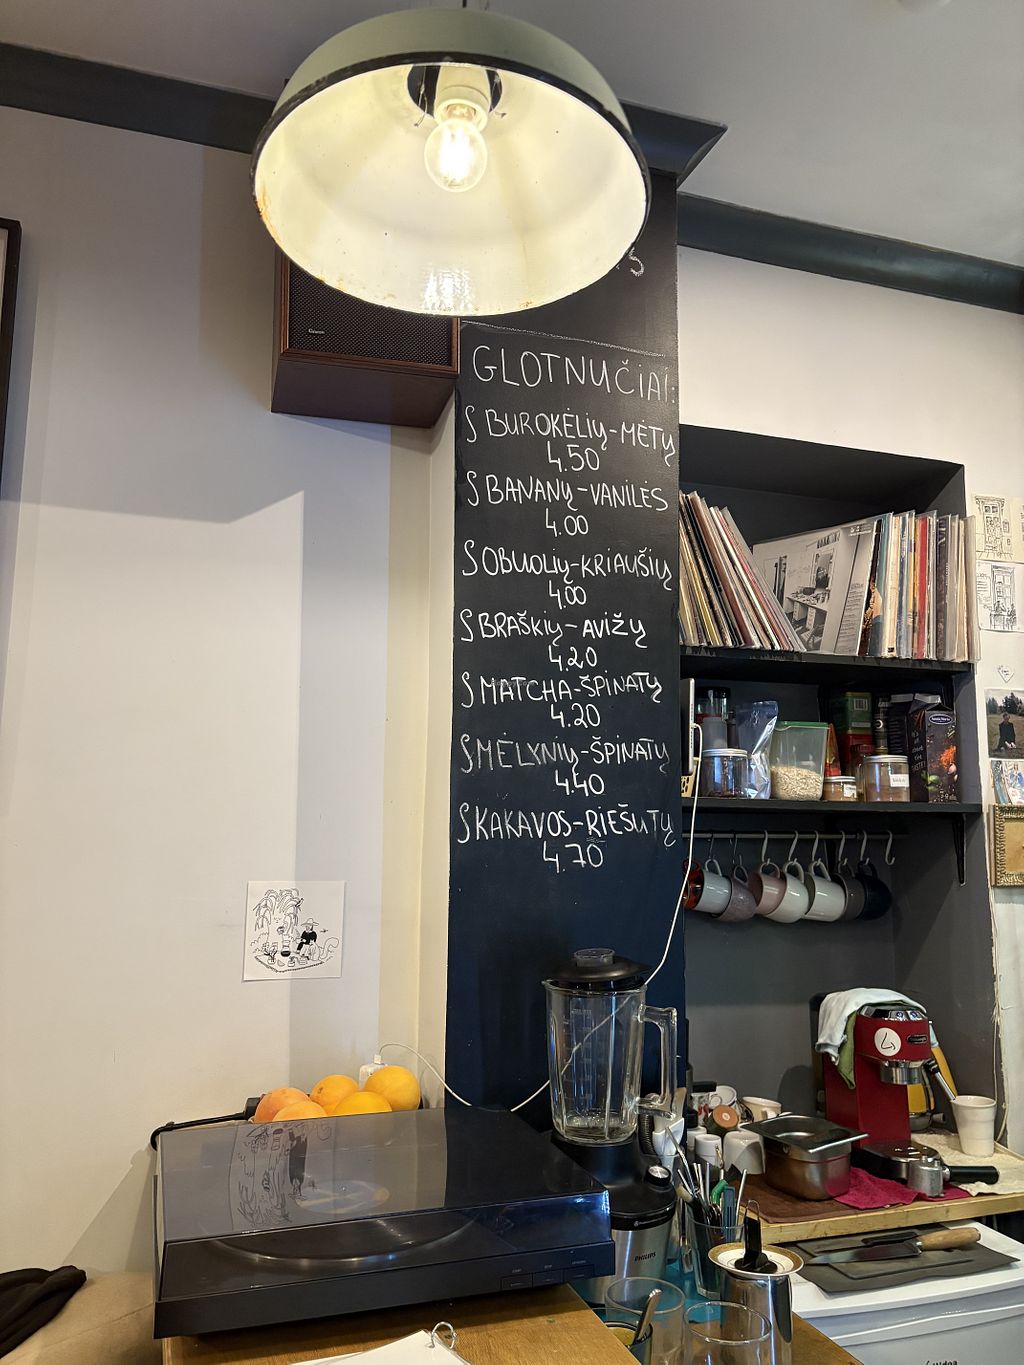 GLOTNUČIAI:
BUROKĖLIŲ-MĖTŲ
4.50
BANANŲ-VANILĖS
4.00
OBUOLIŲ-KRIAUŠIŲ
4.00
BRAŠKIŲ-AVIŽŲ
4.20
MATCHA-ŠPINATŲ
4.20
MĖLYNIŲ-ŠPINATŲ
4.40
KAKAVOS-RIEŠUTŲ
4.70
PHILIPS